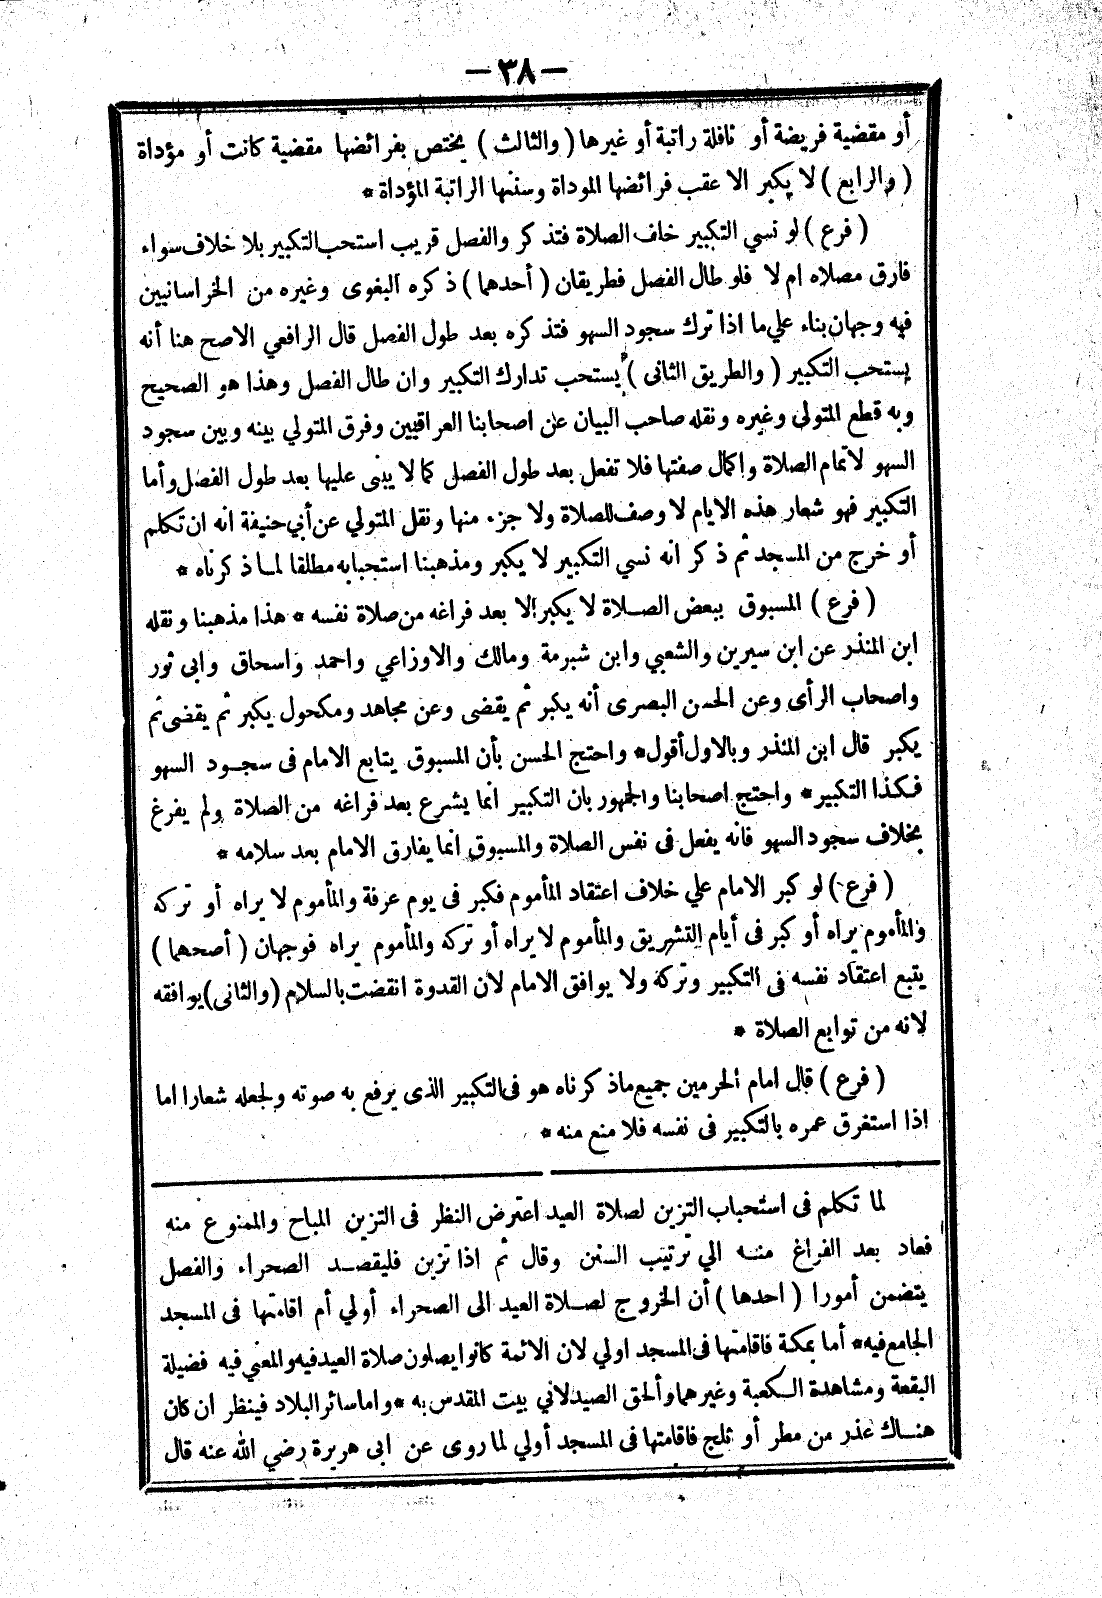 — ٣٨ —
أو مقضية فريضة أو نافلة راتبة أو غيرها ( والثالث ) يختص بفرائضها مقضية كانت أو مؤداة
( والرابع ) لا يكبر الا عقب فرائضها الموداة وسننها الراتبة المؤداة *
( فرع ) لو نسي التكبير خلف الصلاة فتذكر والفصل قريب استحب التكبير بلا خلاف سواء
فارق مصلاه ام لا فلو طال الفصل فطريقان ( أحدهما ) ذكره البغوى وغيره من الخراسانيين
فيه وجهان بناء علي ما اذا ترك سجود السهو فتذكره بعد طول الفصل قال الرافعي الاصح هنا أنه
يستحب التكبير ( والطريق الثانى ) يستحب تدارك التكبير وان طال الفصل وهذا هو الصحيح
وبه قطع المتولى وغيره ونقله صاحب البيان عن اصحابنا العراقيين وفرق المتولي بينه وبين سجود
السهو لاتمام الصلاة واكمال صفتها فلا تفعل بعد طول الفصل كما لا يبنى عليها بعد طول الفصل وأما
التكبير فهو شعار هذه الايام لا وصف للصلاة ولا جزء منها ونقل المتولي عن أبي حنيفة انه ان تكلم
أو خرج من المسجد ثم ذكر انه نسي التكبير لا يكبر ومذهبنا استحبابه مطلقا لما ذكرناه *
( فرع ) المسبوق ببعض الصلاة لا يكبر الا بعد فراغه من صلاة نفسه * هذا مذهبنا ونقله
ابن المنذر عن ابن سيرين والشعبي وابن شبرمة ومالك والاوزاعي واحمد واسحاق وابى ثور
واصحاب الرأى وعن الحسن البصرى أنه يكبر ثم يقضى وعن مجاهد ومكحول يكبر ثم يقضى ثم
يكبر قال ابن المنذر وبالاول أقول * واحتج الحسن بأن المسبوق يتابع الامام فى سجود السهو
فكذا التكبير * واحتج اصحابنا والجمهور بان التكبير انما يشرع بعد فراغه من الصلاة ولم يفرغ
بخلاف سجود السهو فانه يفعل فى نفس الصلاة والمسبوق انما يفارق الامام بعد سلامه *
( فرع ) لو كبر الامام علي خلاف اعتقاد المأموم فكبر فى يوم عرفة والمأموم لا يراه أو تركه
والمأموم يراه أو كبر فى أيام التشريق والمأموم لا يراه أو تركه والمأموم يراه فوجهان ( أصحهما )
يتبع اعتقاد نفسه فى التكبير وتركة ولا يوافق الامام لان القدوة انقضت بالسلام ( والثانى ) يوافقه
لانه من توابع الصلاة *
( فرع ) قال امام الحرمين جميع ماذكرناه هو فى التكبير الذى يرفع به صوته ولجعله شعارا اما
اذا استغرق عمره بالتكبير فى نفسه فلا منع منه *
لما تكلم فى استحباب التزين لصلاة العيد اعترض النظر فى التزين المباح والممنوع منه
فعاد بعد الفراغ منه الي ترتيب السنن وقال ثم اذا تزين فليقصد الصحراء والفصل
يتضمن أمورا ( احدها ) أن الخروج لصلاة العيد الى الصحراء أولي أم اقامتها فى المسجد
الجامع فيه * أما بمكة فاقامتها فى المسجد اولي لان الائمة كانوا يصلون صلاة العيد فيه والمعني فيه فضيلة
البقعة ومشاهدة الكعبة وغيرهما وألحق الصيدلاني بيت المقدس به * واما سائر البلاد فينظر ان كان
هناك عذر من مطر أو ثلج فاقامتها فى المسجد أولي لما روى عن ابى هريرة رضي الله عنه قال